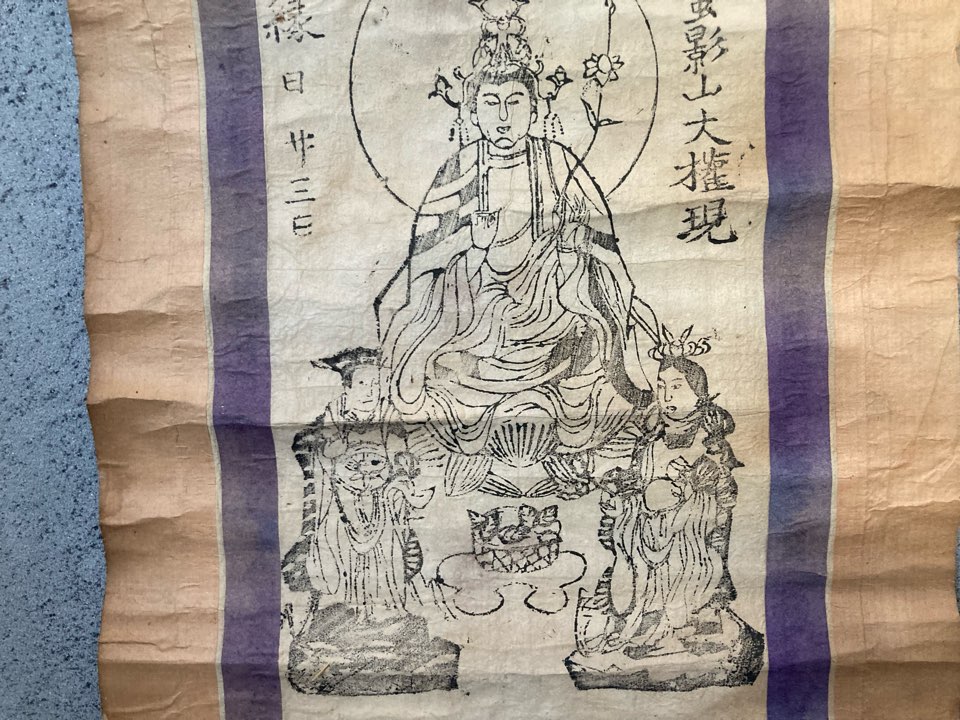 蚕影山大權現
縁日廿三日